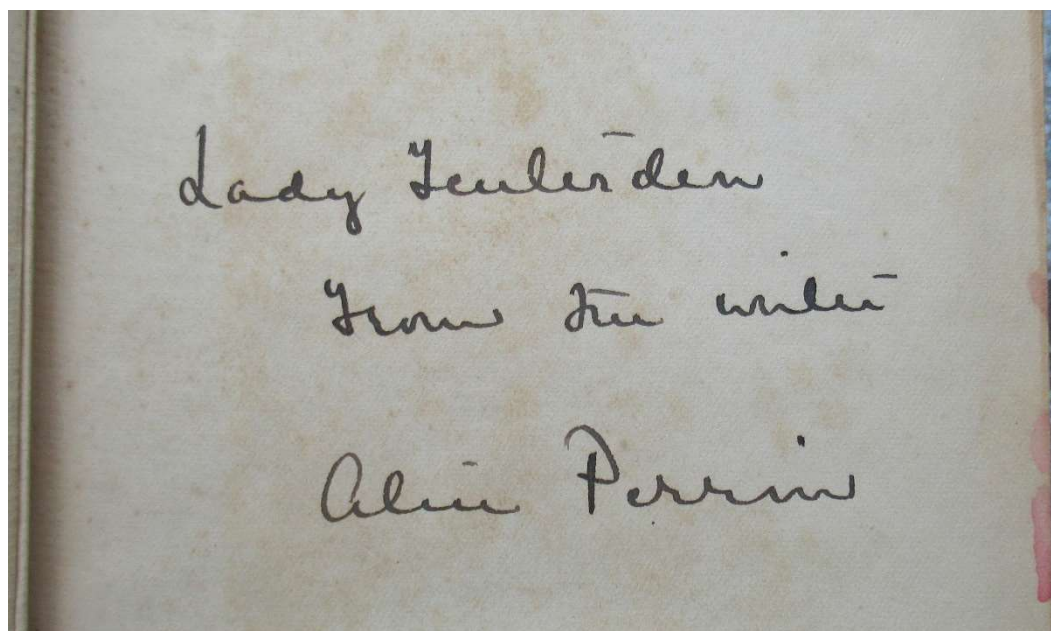 Lady Tenterden
From the writer
Alice Perrin